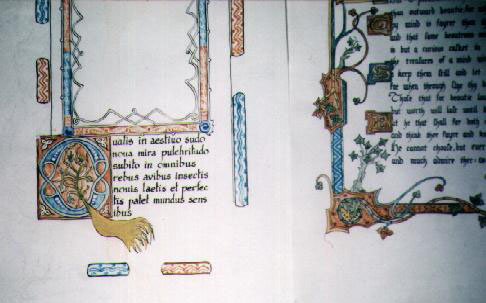 ualis in aestiuo sudo
noua mira pulchritudo
subito in omnibus
rebus avibus insectis
nouis laetis et perfec
tis patet mundus sens
ibus
than outward beautie, for
mind is fayrer than
and that same beauteous
is but a curious casket
the treasures of a mind
keep them still and let
for when through Age thy
Those that for beautie
but worth will last until
at he that shall for both
and think thee fayre and
He cannot choose, but ever
and much admire thee